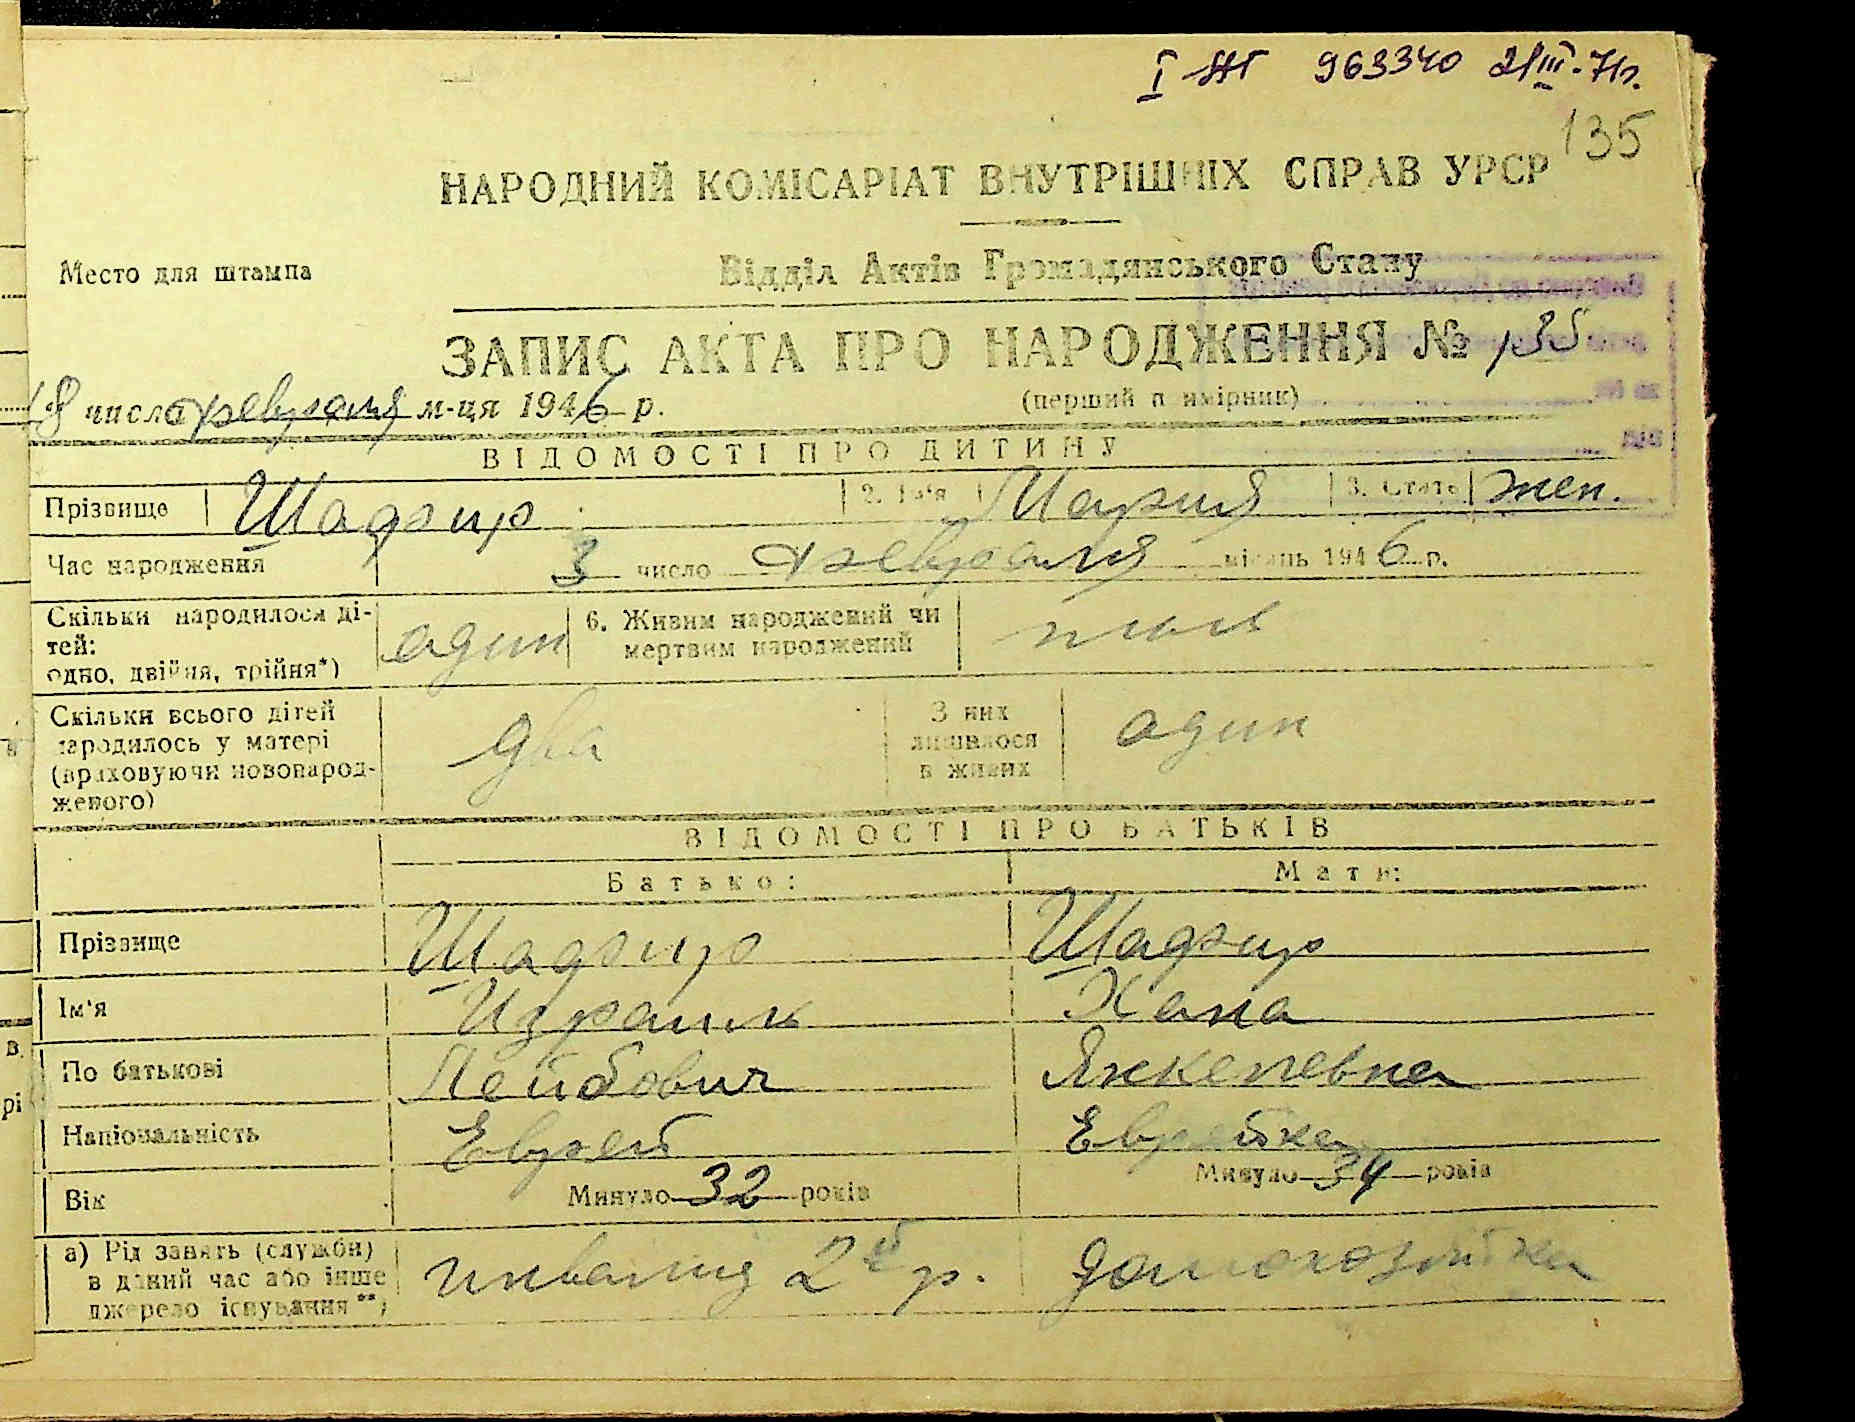 I-ЖТ 963340 21/III-71г.
135
НАРОДНИЙ КОМІСАРІАТ ВНУТРІШНІХ СПРАВ УРСР
Место для штампа
Відділ Актів Громадянського Стану
ЗАПИС АКТА ПРО НАРОДЖЕННЯ № 135
18 числа февраля м-ця 1946 р.
(перший примірник)
ВІДОМОСТІ ПРО ДИТИНУ
Прізвище Шафир 2. Ім'я Мария 3. Стать жен.
Час народження 3 число февраля місяць 1946 р.
Скільки народилося ді-
тей:
одно, двійня, трійня*)
один
6. Живим народжений чи
мертвим народжений
Скільки всього дітей
народилось у матері
(враховуючи новонарод-
женого)
два
З них
лишилося
в живих
один
ВІДОМОСТІ ПРО БАТЬКІВ
Батько: Мати:
Прізвище Шафир Шафир
Ім'я Израиль Хана
По батькові Лейбович Янкелевна
Національність Еврей Еврейка
Вік Минуло 32 років Минуло 34 років
а) Рід занять (служби)
в даний час або інше
джерело існування**)
инвалид 2й гр. домохозяйка